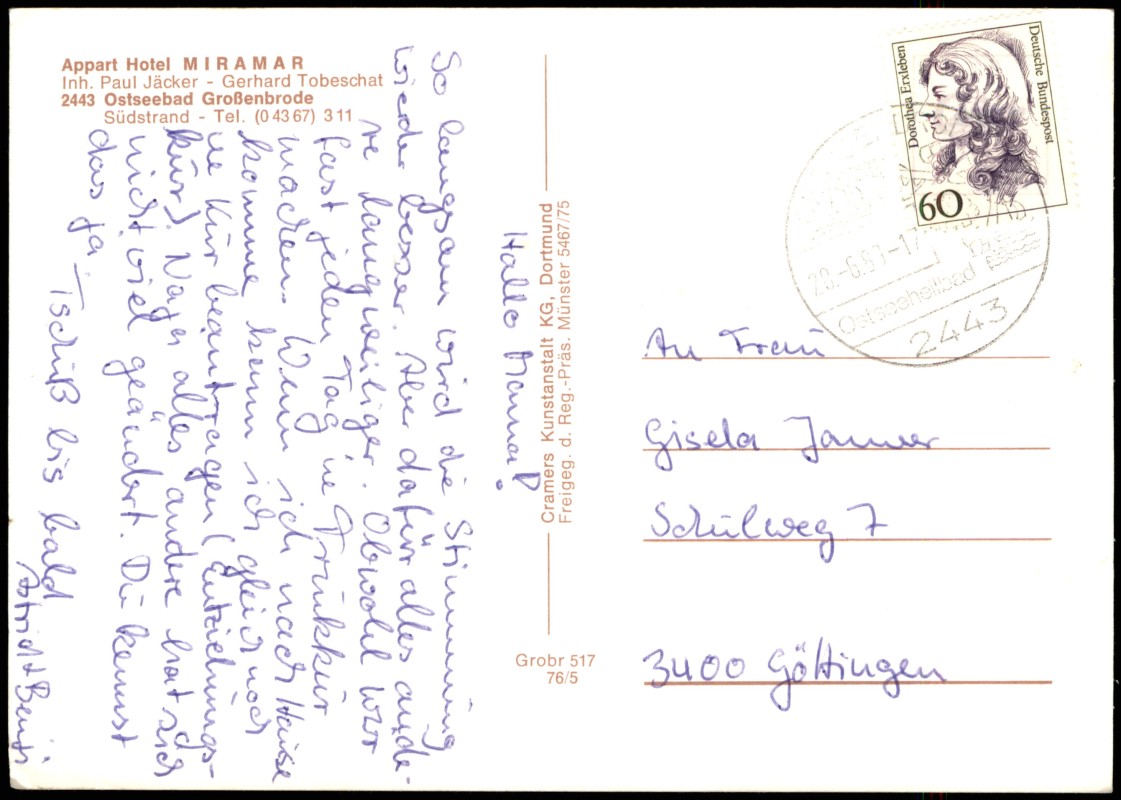 Appart Hotel MIRAMAR
Inh. Paul Jäcker - Gerhard Tobeschat
2443 Ostseebad Großenbrode
Südstrand - Tel. (0 43 67) 3 11
Hallo Mama!
So langsam wird die Stimmung
wieder besser. Aber dafür alles ande-
re langweiliger. Obwohl wir
fast jeden Tag 'ne Trinkkur
machen. Wenn ich nach Hause
komme kann ich gleich noch
'ne Kur beantragen (Entziehungs-
kur). Naja alles andere hat sich
nicht viel geändert. Du kennst
das ja. Tschüß bis bald
Astrid + Bernd
Cramers Kunstanstalt KG, Dortmund
Freigeg. d. Reg.-Präs. Münster 5467/75
Grobr 517
76/5
Dorothea Erxleben
Deutsche Bundespost
60
Ostseeheilbad
2443
An Frau
Gisela Janner
Schulweg 7
3400 Göttingen